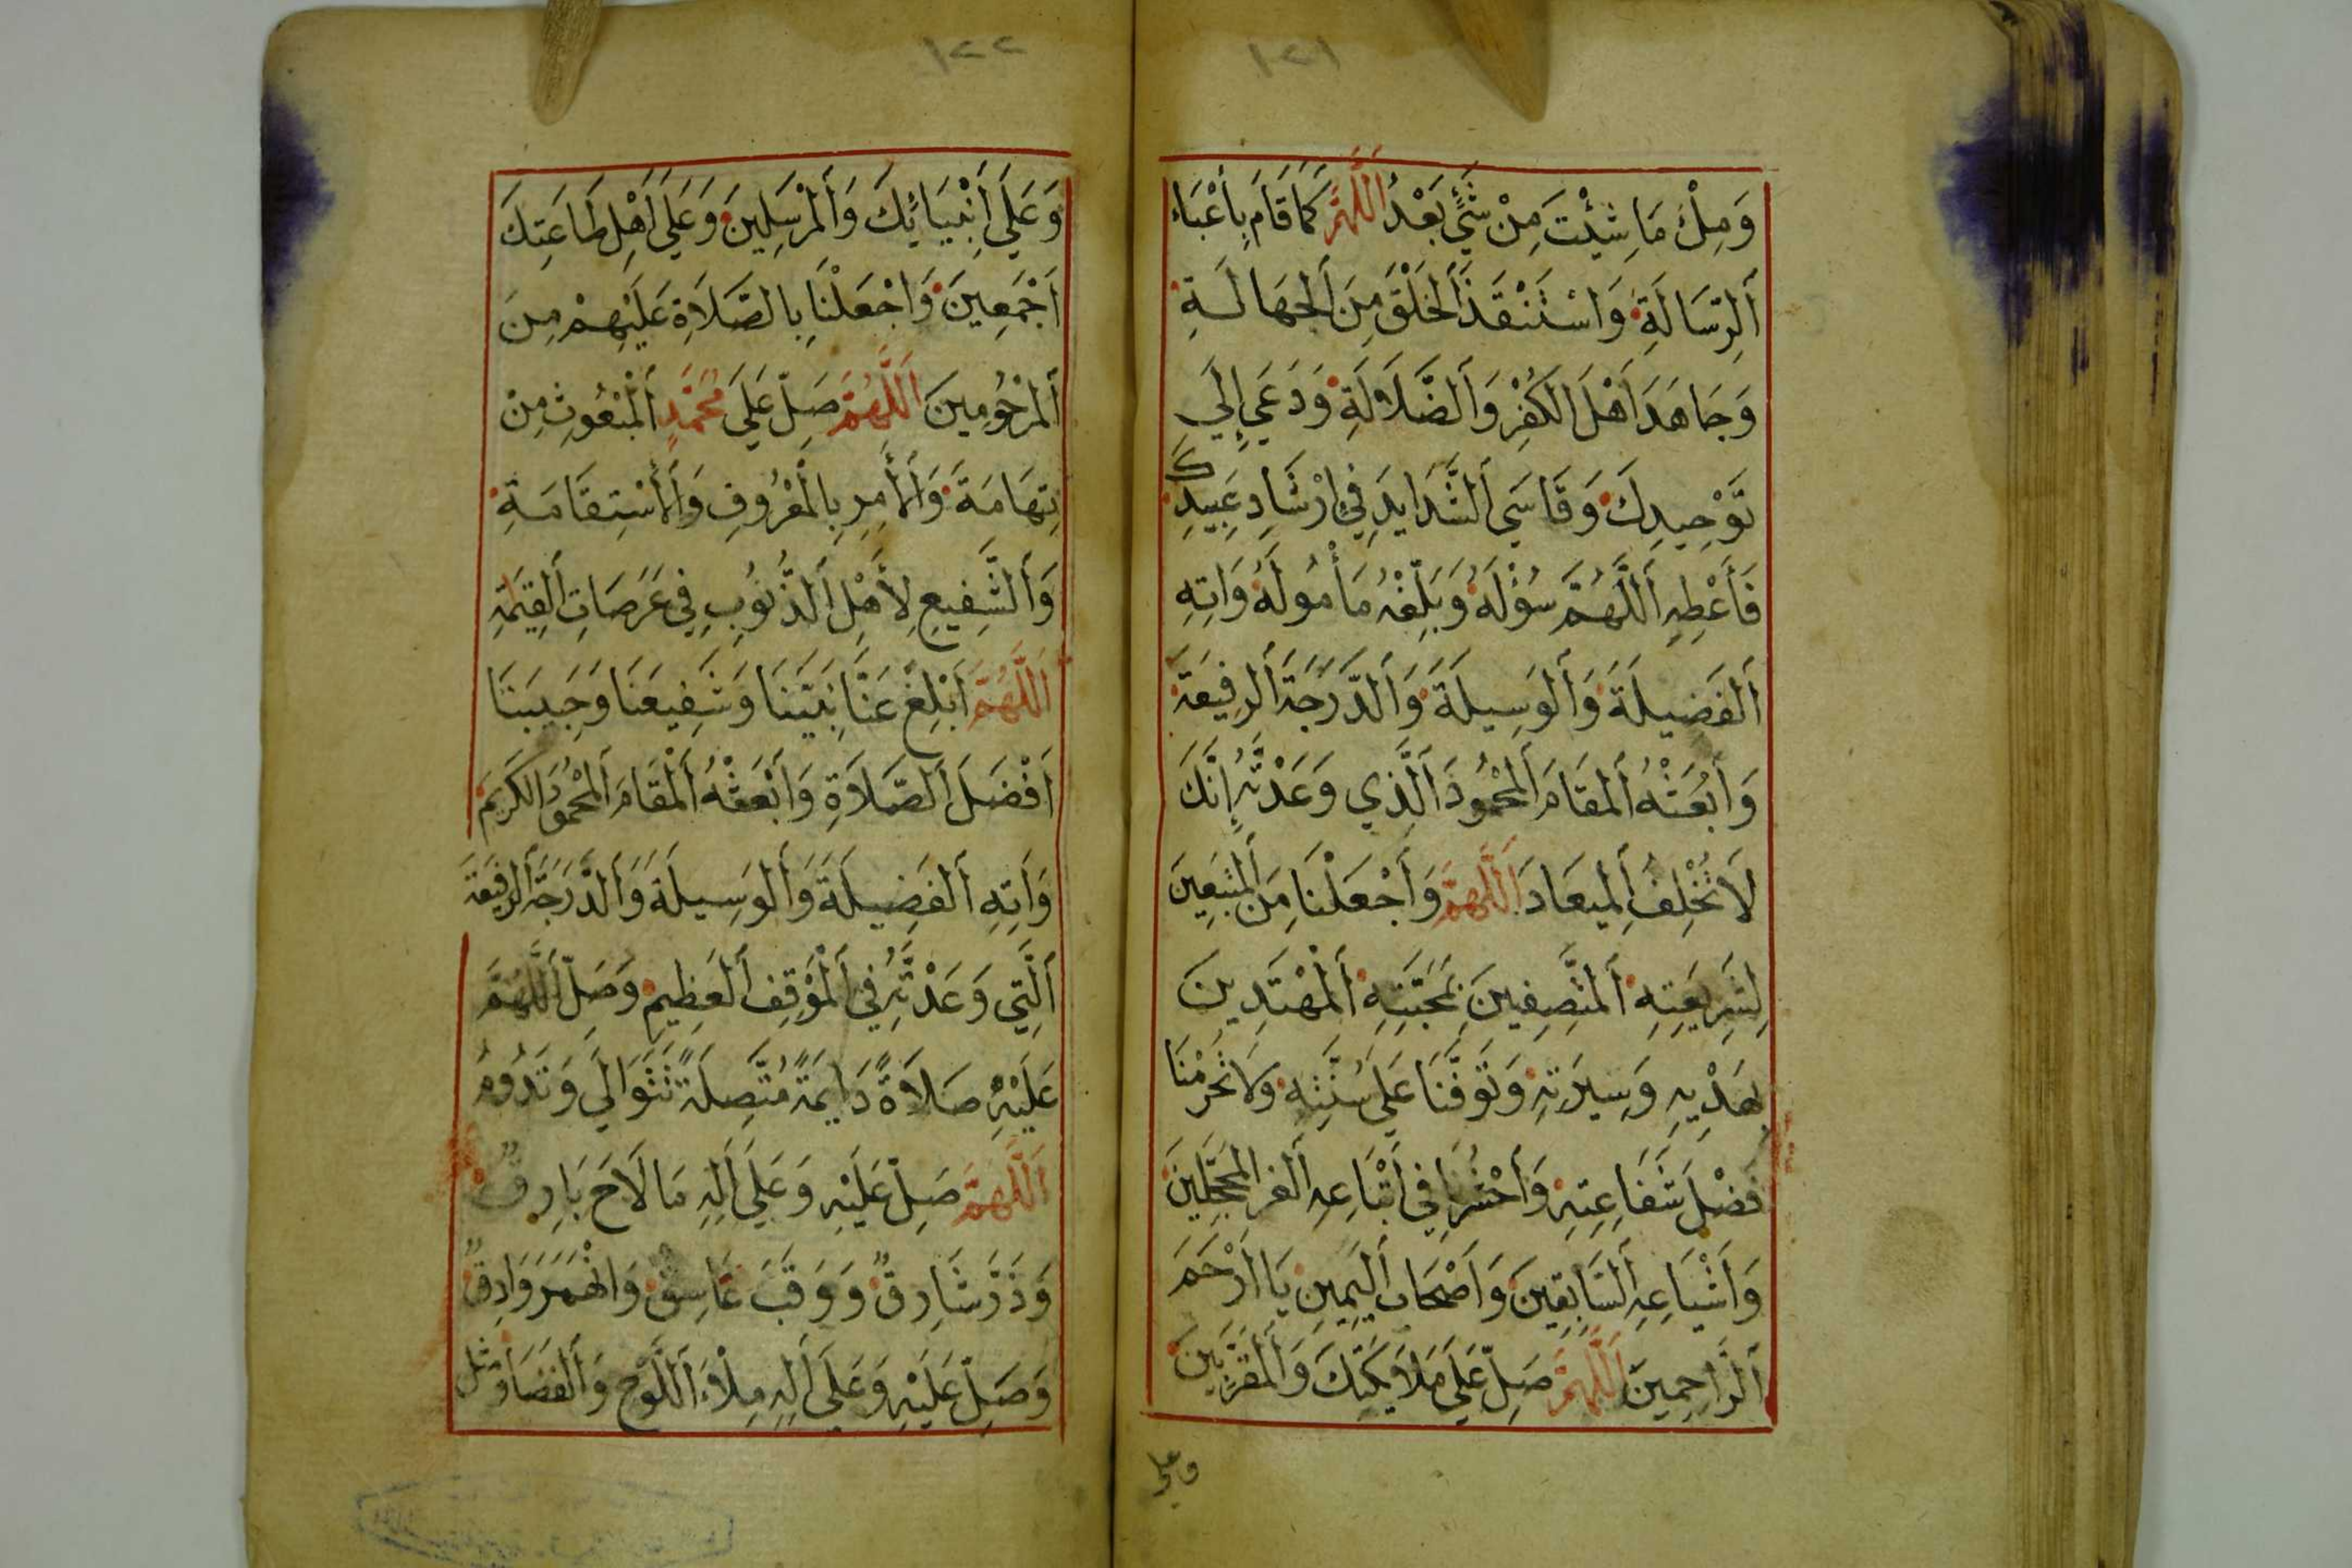 ١٢١
وَمِلْءَ مَا شِئْتَ مِنْ شَيْءٍ بَعْدُ اَللَّهُمَّ كَمَا قَامَ بِأَعْبَاءِ
اَلرِّسَالَةِ وَاسْتَنْقَذَ اَلْخَلْقَ مِنَ اَلْجَهَالَةِ
وَجَاهَدَ اَهْلَ الكُفْرِ وَاَلضَّلَالَةِ وَدَعَي إِلَي
تَوْحِيدِكَ وَقَاسَي اَلشَّدَايِدَ فِي اِرْشَادِ عَبِيدِكَ
فَأَعْطِهِ اَللَّهُمَّ سُؤْلَهُ وَبَلِّغْهُ مَأْمُولَهُ وَاتِهِ
اَلفَضِيلَةَ وَاَلوَسِيلَةَ وَاَلدَّرَجَةَ اَلرفِيعَةَ
وَاَبْعَثْهُ اَلمَقَامَ اَلمَحْمُودَ اَلَّذِي وَعَدْتَهُ إِنَّكَ
لَا تُخْلِفُ اَلمِيعَادَ اَللَّهُمَّ وَاَجْعَلْنَا مِنَ اَلمتَّبِعِينَ
لِشَرِيعَتِهِ اَلمتَّصِفِينَ بِمَحَبَّتِهِ اَلْمُهْتَدِينَ
بِهَدْيِهِ وَسِيرَتِهِ وَتَوَفَّنَا عَلَي سُنَّتِهِ وَلَا تَحْرِمْنَا
فَضْلَ شَفَاعِتِهِ وَاَحْشُرْنَا فِي اَتْبَاعِهِ اَلغر المحَجَّلِينَ
وَاَشْيَاعِهِ اَلسَّابِقِينَ وَاَصْحَابِ اَليَمِينِ يَا اَرْحَمَ
اَلرَّاحِمِينَ اَللَّهُمَّ صَلِّ عَلَي مَلَايِكَتِكَ وَاَلمقَرَّبِينَ
وعلي
١٢٢
وَعَلَي أَنْبِيَائِكَ وَاَلمرْسَلِينَ وَعَلَي اَهْلِ طَاعَتِكَ
اَجْمَعِينَ وَاجْعَلْنَا بِالصَّلَاةِ عَلَيْهِمْ مِنَ
اَلمرْحُومِينَ اَللَّهُمَّ صَلِّ عَلَي مُحَمَّدٍ اَلْمبْعُوثِ مِنْ
تِهَامَةَ وَاَلأَمِرِ بِالْمَعْرُوفِ وَاَلأسْتِقَامَةِ
وَاَلشَّفِيعِ لِأَهْلِ اَلذُّنُوبِ فِي عَرَصَاتِ اَلقِيَمَةِ
اَللَّهُمَّ اَبْلِغْ عَنَّا نَبِيَّنَا وَشَفِيعَنَا وَحَبِيبَنَا
اَفْضَلَ اَلصَّلَاةِ وَاَبْعَثْهُ اَلْمَقَامَ اَلمَحْمُودَ الكَرِيمَ
وَاَتِهِ اَلفَضِيلَةَ وَاَلوَسِيلَةَ وَاَلدَّرَجَةَ اَلرفِيعَةَ
اَلَّتِي وَعَدْتَهُ فِي اَلْمَوْقِفِ اَلعَظِيمِ وَصَلِّ اَللَّهُمَّ
عَلَيْهِ صَلَاةً دَايِمَةً مُتَّصِلَةً تَتَوَالَي وَتَدُومُ
اَللَّهُمَّ صَلِّ عَلَيْهِ وَعَلَي اَلِهِ مَا لَاحَ بَارِقٌ
وَذَرَّ شَارِقٌ وَوَقَبَ غَاسِقٌ وَانْهَمَرَ وَادِقٌ
وَصَلِّ عَلَيْهِ وَعَلَي اَلِهِ مِلْأَ اَللَّوْحِ وَاَلفَضَا وَمثل